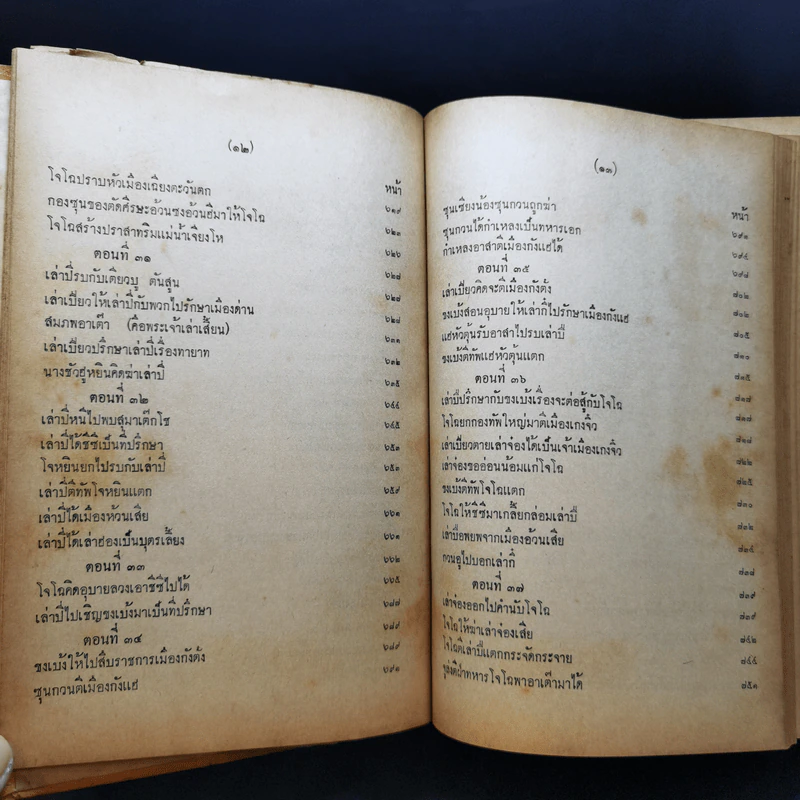 (๑๒)
หน้า
โจโฉปราบหัวเมืองเฉียงตะวันตก ๖๑๙
กองซุนของตัดศีรษะอ้วนซงอ้วนฮีมาให้โจโฉ ๖๒๑
โจโฉสร้างปราสาทริมแม่น้ำเจียงโห ๖๒๖
ตอนที่ ๓๑
เล่าปี่รบกับเตียวบู ตันสูน ๖๒๗
เล่าเปียวให้เล่าปี่กับพวกไปรักษาเมืองด่าน ๖๒๘
สมภพอาเต๊า (คือพระเจ้าเล่าเสี้ยน) ๖๒๘
เล่าเปียวปรึกษาเล่าปี่เรื่องทายาท ๖๓๑
นางชัวฮูหยินคิดฆ่าเล่าปี่ ๖๓๒
ตอนที่ ๓๒ ๖๓๕
เล่าปี่หนีไปพบสุมาเต๊กโช ๖๔๔
เล่าปี่ได้ชีซีเป็นที่ปรึกษา ๖๕๑
โจหยินยกไปรบกับเล่าปี่ ๖๕๑
เล่าปี่ตีทัพโจหยินแตก ๖๕๙
เล่าปี่ได้เมืองห้วนเสีย ๖๖๑
เล่าปี่ได้เล่าฮองเป็นบุตรเลี้ยง ๖๖๑
ตอนที่ ๓๓ ๖๖๒
โจโฉคิดอุบายลวงเอาชีซีไปได้ ๖๖๕
เล่าปี่ไปเชิญขงเบ้งมาเป็นที่ปรึกษา ๖๘๗
ตอนที่ ๓๔ ๖๘๙
ขงเบ้งให้ไปสืบราชการเมืองกังตั๋ง ๖๘๙
ซุนกวนตีเมืองกังแฮ ๖๙๑
(๑๓)
หน้า
ซุนเซียงน้องซุนกวนถูกฆ่า ๖๙๑
ซุนกวนได้กำเหลงเป็นทหารเอก ๖๙๔
กำเหลงอาสาตีเมืองกังแฮได้ ๖๙๘
ตอนที่ ๓๕
เล่าเปียวคิดจะตีเมืองกังตั๋ง
ขงเบ้งสอนอุบายให้เล่ากี๋ไปรักษาเมืองกังแฮ
แฮหัวตุ้นรับอาสาไปรบเล่าปี่
ขงเบ้งตีทัพแฮหัวตุ้นแตก
ตอนที่ ๓๖
เล่าปี่ปรึกษากับขงเบ้งเรื่องจะต่อสู้กับโจโฉ
โจโฉยกกองทัพใหญ่มาตีเมืองเกงจิ๋ว
เล่าเปียวตายเล่าจ๋องได้เป็นเจ้าเมืองเกงจิ๋ว
เล่าจ๋องขออ่อนน้อมแก่โจโฉ
ขงเบ้งตีทัพโจโฉแตก
โจโฉให้ชีซีมาเกลี้ยกล่อมเล่าปี่
เล่าปี่อพยพจากเมืองอ้วนเสีย
กวนอูไปบอกเล่ากี๋
ตอนที่ ๓๗
เล่าจ๋องออกไปคำนับโจโฉ
โจโฉให้ฆ่าเล่าจ๋องเสีย
โจโฉตีเล่าปี่แตกกระจัดกระจาย
จูล่งตีฝ่าทหารโจโฉพาอาเต๊ามาได้ ๘๕๑